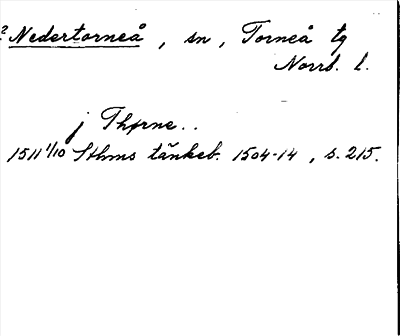 ? Nedertorneå, sn, Torneå tg
Norrb. l.
j Thørne..
1511 1/10 Sthms tänkeb. 1504-14, s. 215.